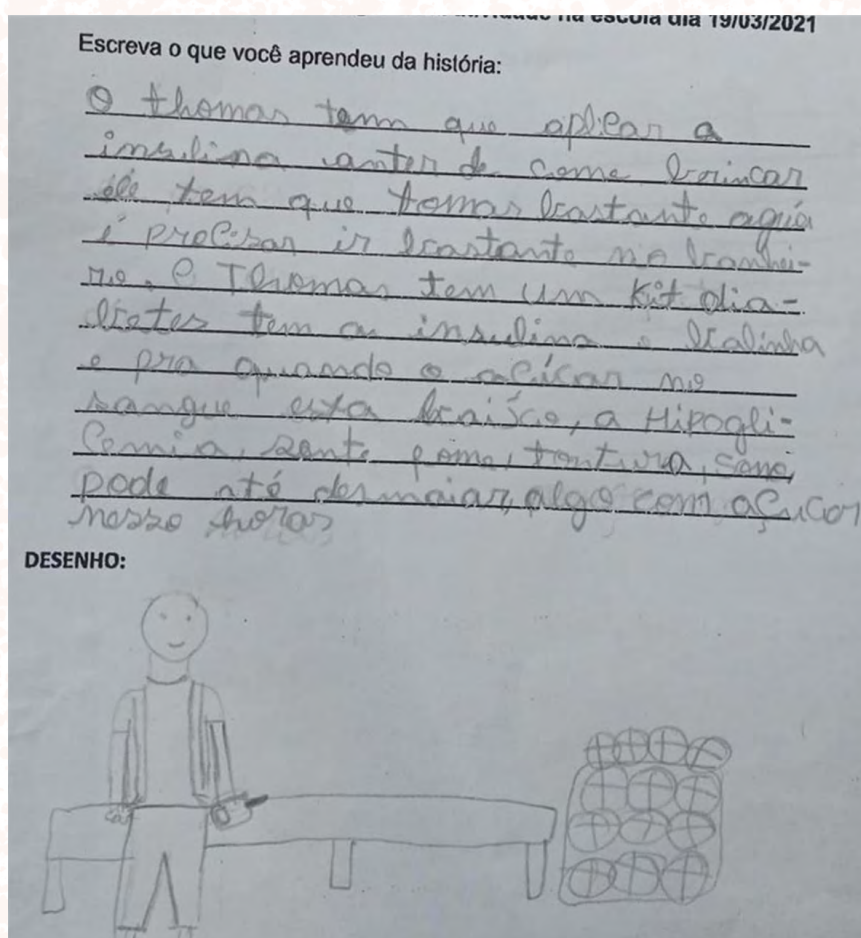 na escola dia 19/03/2021
Escreva o que você aprendeu da história:
O thomas tem que aplicar a
insulina anter de come brincar
ele tem que tomas bastante aguá
é precisar ir bastante no banhei-
ro. e Thomas tem um Kit dia-
betes tem a insulina e balinha
e pra quando o açúcar no
sangue esta baixo, a Hipogli-
cemia, sente fome, tontura, sono,
pode até desmaiar, algo com açucar
nesso horas
DESENHO: